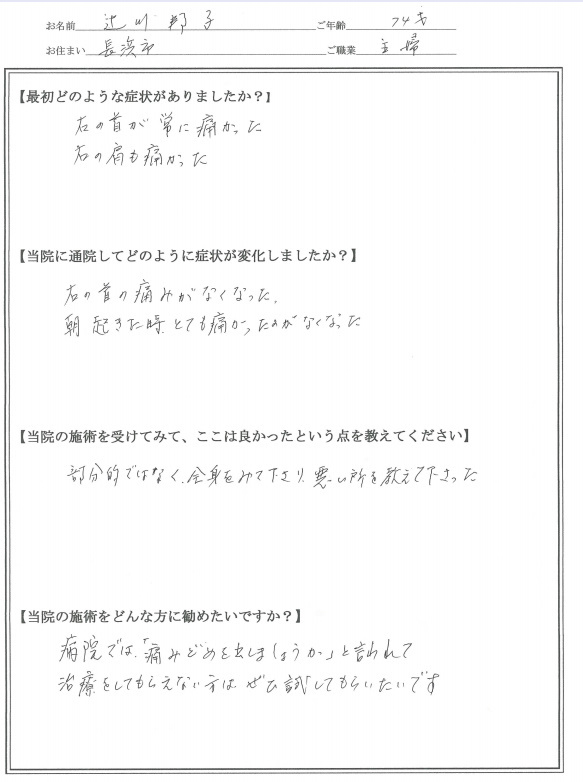 お名前 辻川 邦子 ご年齢 74才
お住まい 長浜市 ご職業 主婦
【最初どのような症状がありましたか？】
右の首が常に痛かった
右の肩も痛かった
【当院に通院してどのように症状が変化しましたか？】
右の首の痛みがなくなった。
朝起きた時、とても痛かったのがなくなった
【当院の施術を受けてみて、ここは良かったという点を教えてください】
部分的ではなく、全身をみて下さり、悪い所を教えて下さった
【当院の施術をどんな方に勧めたいですか？】
病院では、「痛みどめを出しましょうか」と言われて
治療をしてもらえない方は、ぜひ試してもらいたいです